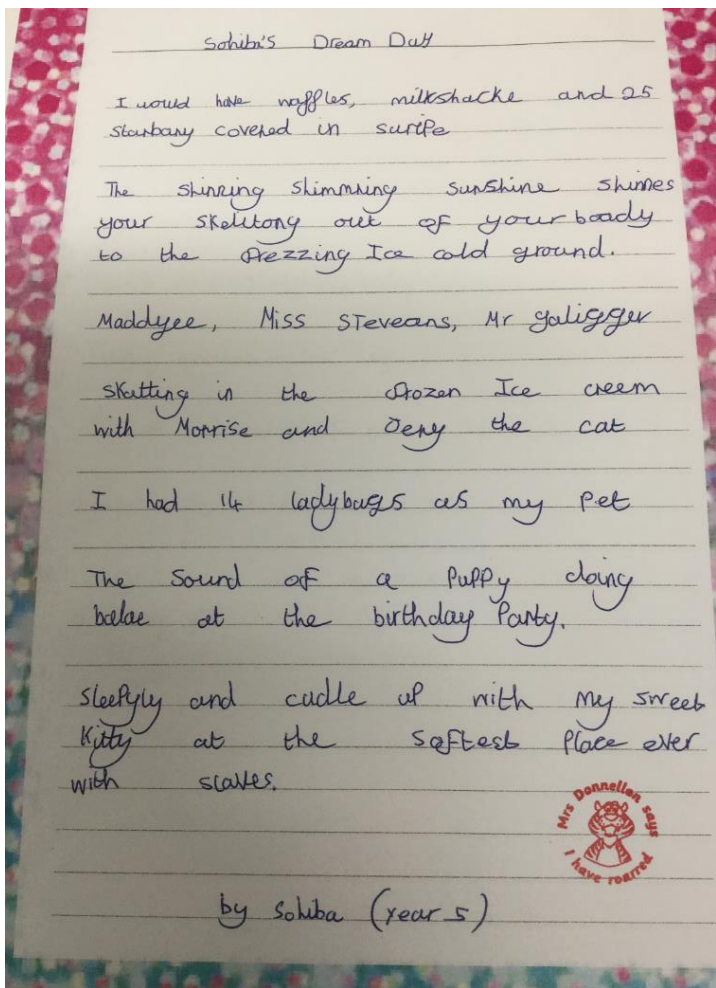 Sohiba's Dream Day
I would have waffles, milkshacke and 25
starbary covered in suripe
The shinning shimmning sunshine shinnes
your skelitong out of your boady
to the frezzing Ice cold ground.
Maddyee, Miss Steveans, Mr galigger
skatting in the frozen Ice creem
with Morrise and Jeny the cat
I had 14 ladybags as my pet
The sound of a puppy doing
balae at the birthday Party.
sleepyly and cudle up with my sweet
Kitty at the softest place ever
with scaves.
Mrs Donnellan says
I have roarred
by Sohiba (year 5)